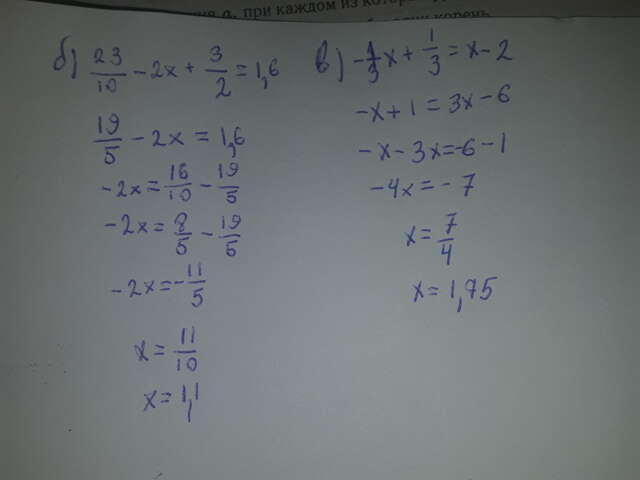 а, при каждом из
корень
б) 23/10 - 2x + 3/2 = 1,6
19/5 - 2x = 1,6
-2x = 16/10 - 19/5
-2x = 8/5 - 19/5
-2x = -11/5
x = 11/10
x = 1,1
в) -1/3x + 1/3 = x - 2
-x + 1 = 3x - 6
-x - 3x = -6 - 1
-4x = -7
x = 7/4
x = 1,75